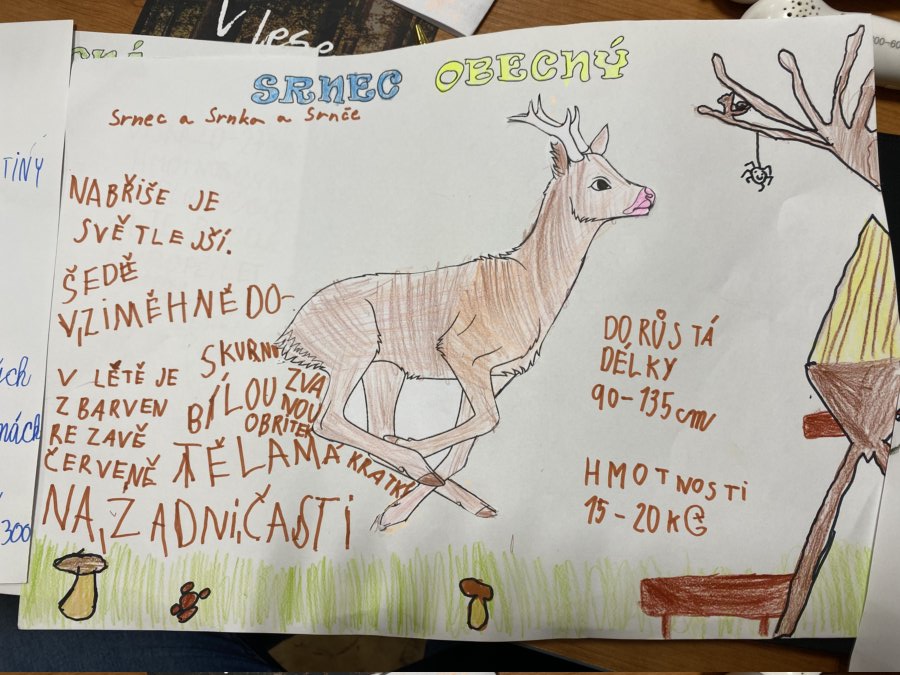 V lese
SRNEC OBECNÝ
Srnec a Srnka a Srnče
NA BŘIŠE JE
SVĚTLEJŠÍ.
ŠEDĚ
V,ZIMĚHNĚDO-
V LĚTĚ JE
ZBARVEN
REZAVĚ
ČERVENĚ
SKURNOU
BÍLOU
ZVA
NOU
OBŘITEK
TĚLAMA KRATKÝ
NA,ZADNIČASTI
DORŮSTÁ
DÉLKY
90-135cm
HMOTNOSTI
15-20KG
TINY
ách
nách
300